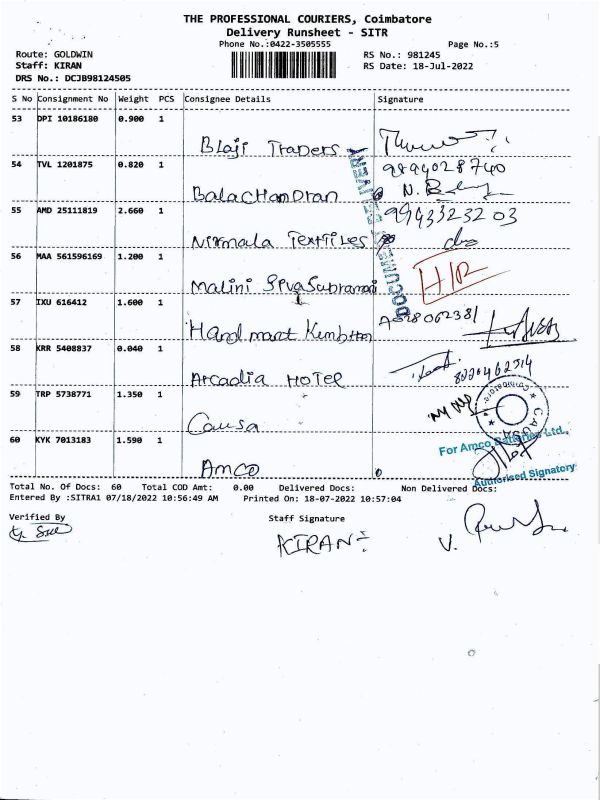 THE PROFESSIONAL COURIERS, Coimbatore
Delivery Runsheet - SITR
Phone No.:0422-3505555 Page No.:5
Route: GOLDWIN RS No.: 981245
Staff: KIRAN RS Date: 18-Jul-2022
DRS No.: DCJB98124505
S No Consignment No Weight PCS Consignee Details Signature
53 DPI 10186180 0.900 1
Blaji Traders
54 TVL 1201875 0.820 1 9894028740
Balachandran N.
55 AMD 25111819 2.660 1 9943323203
Nirmala Textiles
56 MAA 561596169 1.200 1 H/R
Malini
57 IXU 616412 1.600 1
Hand mart
58 KRR 5408837 0.040 1
Arcadia Hotel 8220462514
59 TRP 5738771 1.350 1
Causa
60 KYK 7013183 1.590 1 For Amco Batteries Ltd.,
Amco
Authorised Signatory
DOCUMENT DELIVERY
Total No. Of Docs: 60 Total COD Amt: 0.00 Delivered Docs: Non Delivered Docs:
Entered By :SITRA1 07/18/2022 10:56:49 AM Printed On: 18-07-2022 10:57:04
Verified By Staff Signature
KIRAN
V.